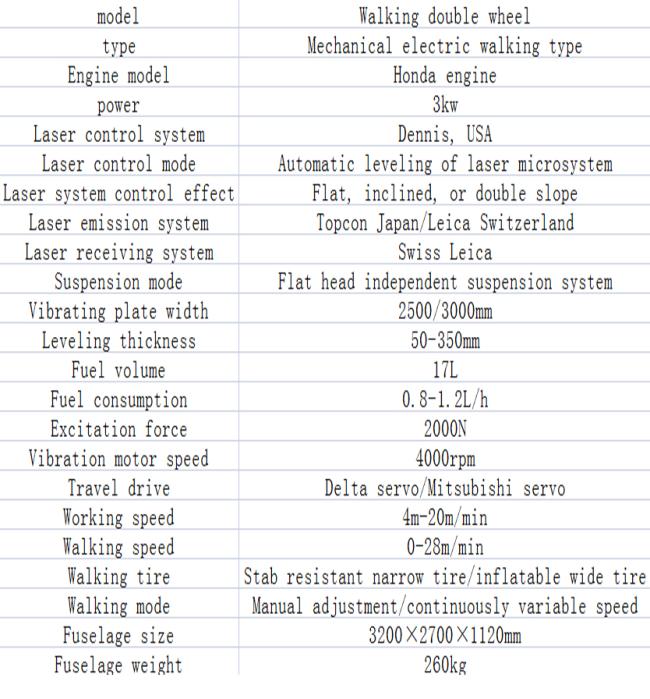 model Walking double wheel
type Mechanical electric walking type
Engine model Honda engine
power 3kw
Laser control system Dennis, USA
Laser control mode Automatic leveling of laser microsystem
Laser system control effect Flat, inclined, or double slope
Laser emission system Topcon Japan/Leica Switzerland
Laser receiving system Swiss Leica
Suspension mode Flat head independent suspension system
Vibrating plate width 2500/3000mm
Leveling thickness 50-350mm
Fuel volume 17L
Fuel consumption 0.8-1.2L/h
Excitation force 2000N
Vibration motor speed 4000rpm
Travel drive Delta servo/Mitsubishi servo
Working speed 4m-20m/min
Walking speed 0-28m/min
Walking tire Stab resistant narrow tire/inflatable wide tire
Walking mode Manual adjustment/continuously variable speed
Fuselage size 3200×2700×1120mm
Fuselage weight 260kg